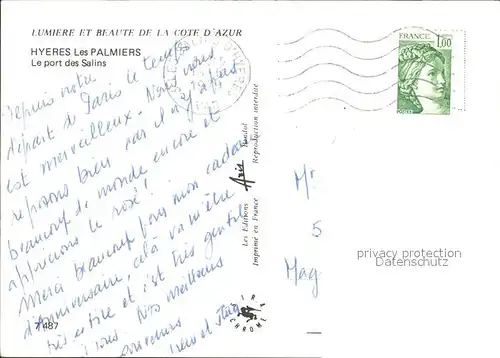 LUMIERE ET BEAUTE DE LA COTE D'AZUR
HYERES Les PALMIERS
Le port des Salins
Depuis notre
départ de Paris le temps
est merveilleux. Nous nous
reposons bien car il n'y a pas
beaucoup de monde encore et
apprécions le rosé!
Merci beaucoup pour mon cadeau
d'anniversaire, celà va m'être
très utile et c'est très gentil
à vous. Nos meilleurs
souvenirs
7487
Les Editions Aris Bandol
Imprimé en France Reproduction interdite
FRANCE
1,00
POSTES
Mr
5
Mag
privacy protection
Datenschutz
MIRA
CHROME